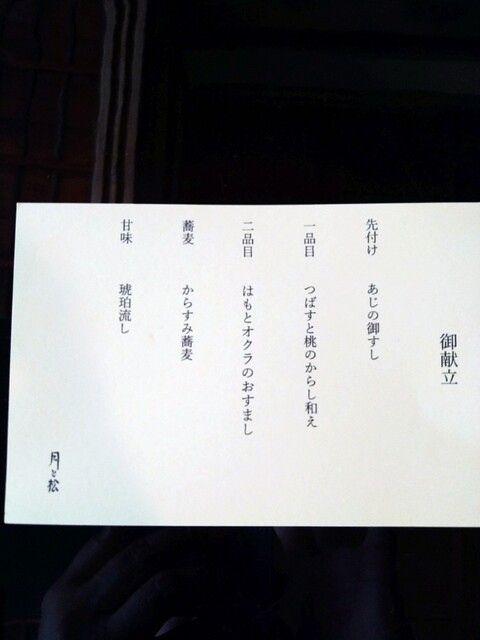 御献立
先付け　あじの御すし
一品目　つばすと桃のからし和え
二品目　はもとオクラのおすまし
蕎麦　からすみ蕎麦
甘味　琥珀流し
月と松